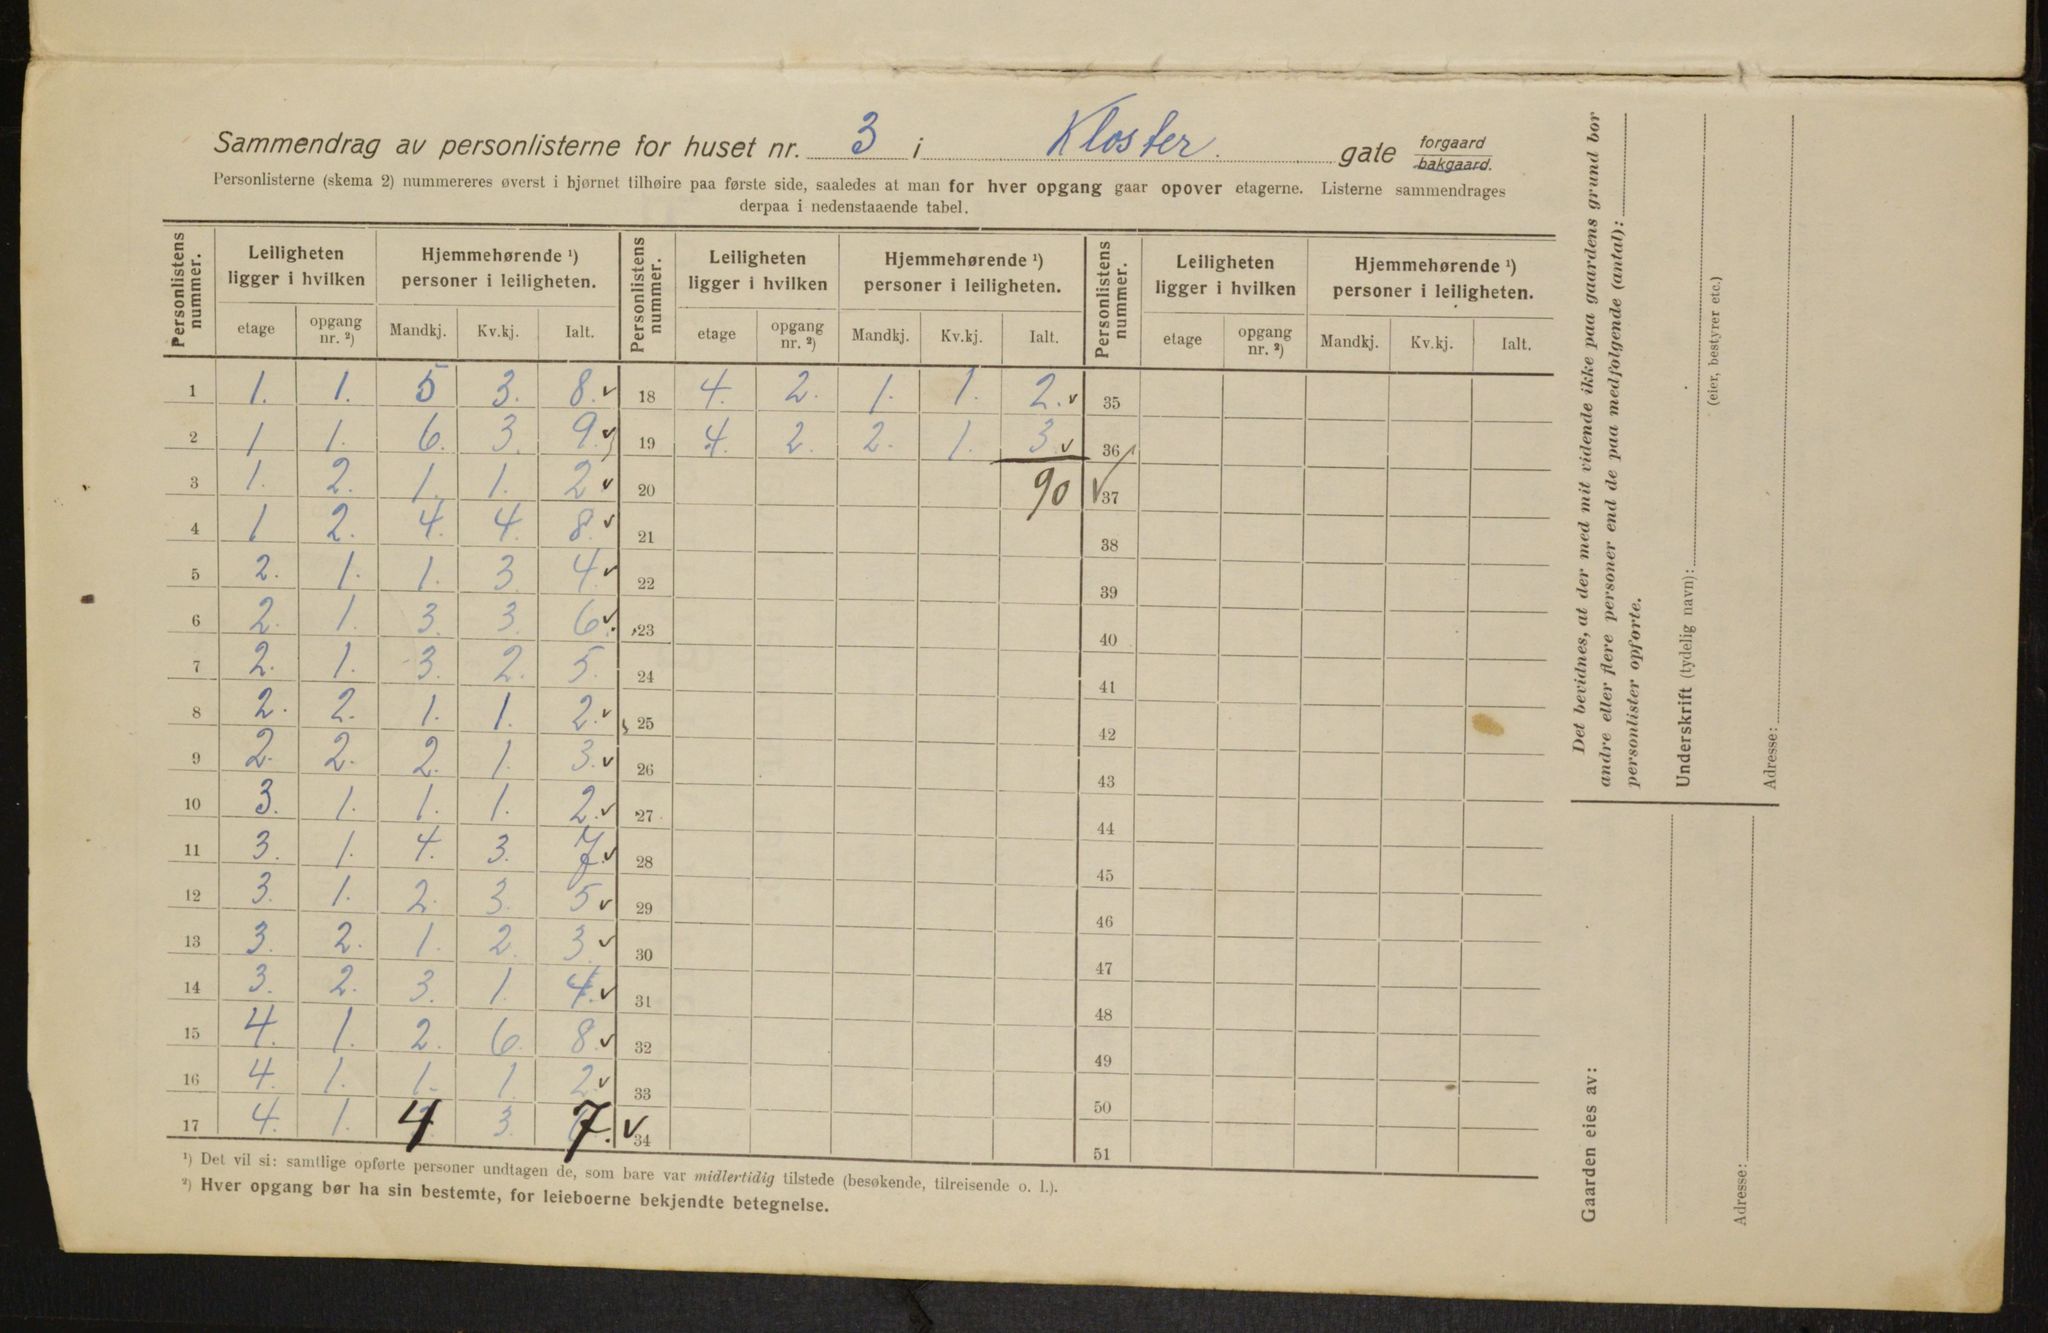 Sammendrag av personlisterne for huset nr. 3 i Kloster gate forgaard bakgaard.
Personlisterne (skema 2) nummereres øverst i hjørnet tilhøire paa første side, saaledes at man for hver opgang gaar opover etagerne. Listerne sammendrages
derpaa i nedenstaaende tabel.
Personlistens nummer. Leiligheten ligger i hvilken Hjemmehørende ¹) personer i leiligheten. Personlistens nummer. Leiligheten ligger i hvilken Hjemmehørende ¹) personer i leiligheten. Personlistens nummer. Leiligheten ligger i hvilken Hjemmehørende ¹) personer i leiligheten.
etage opgang nr. ²) Mandkj. Kv.kj. Ialt. etage opgang nr. ²) Mandkj. Kv.kj. Ialt. etage opgang nr. ²) Mandkj. Kv.kj. Ialt.
1 1. 1. 5 3. 8. 18 4. 2. 1. 1. 2. 35
2 1 1. 6. 3. 9. 19 4. 2. 2. 1. 3. 36
3 1. 2. 1. 1. 2 20 90 37
4 1 2. 4. 4. 8. 21 38
5 2. 1. 1. 3 4. 22 39
6 2. 1. 3. 3. 6. 23 40
7 2. 1. 3. 2. 5. 24 41
8 2. 2. 1. 1. 2. 25 42
9 2. 2. 2. 1. 3. 26 43
10 3. 1. 1. 1. 2. 27 44
11 3. 1. 4. 3. 7. 28 45
12 3. 1. 2. 3. 5 29 46
13 3. 2. 1. 2. 3. 30 47
14 3. 2. 3. 1. 4. 31 48
15 4. 1. 2. 6. 8. 32 49
16 4. 1. 1. 1. 2. 33 50
17 4. 1. 4 3. 7. 34 51
¹) Det vil si: samtlige opførte personer undtagen de, som bare var midlertidig tilstede (besøkende, tilreisende o. l.).
²) Hver opgang bør ha sin bestemte, for leieboerne bekjendte betegnelse.
Det bevidnes, at der med mit vidende ikke paa gaardens grund bor
andre eller flere personer end de paa medfølgende (antal):
personlister opførte.
Underskrift (tydelig navn):
(eier, bestyrer etc.)
Adresse:
Gaarden eies av:
Adresse: